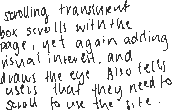 scrolling translucent
box scrolls with the
page, yet again adding
visual interest, and
draws the eye. Also tells
users that they need to
scroll to use the site.